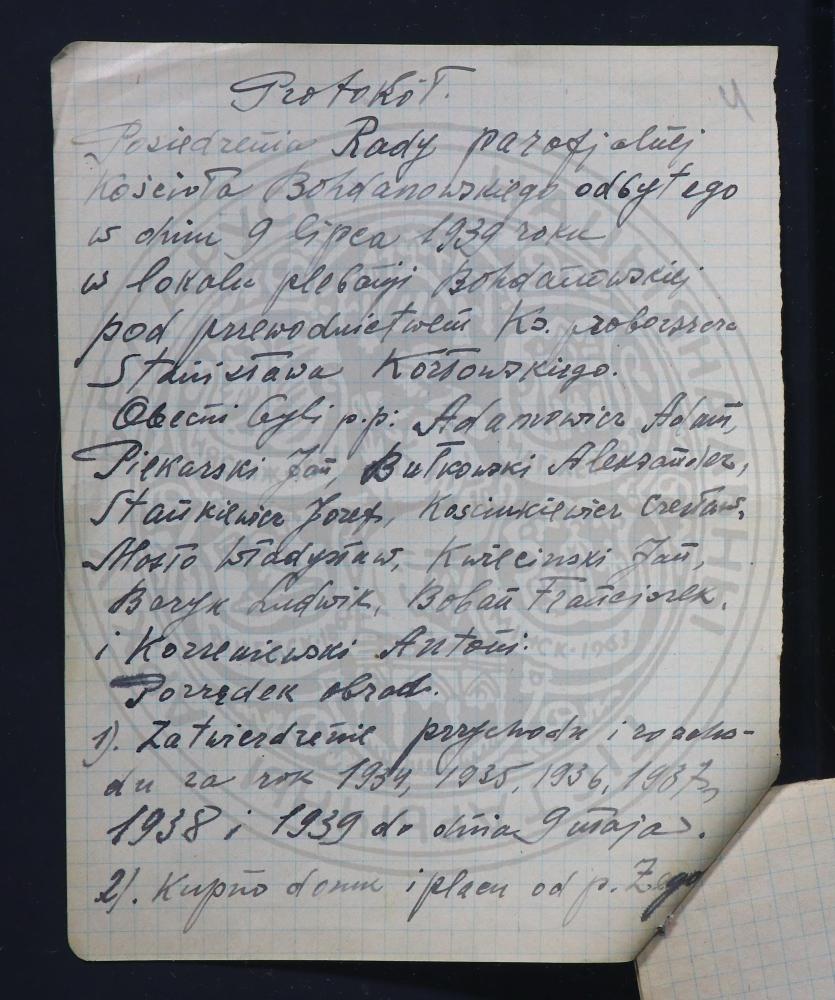 Protokół.
4
Posiedzenia Rady parafjalnej
Kościoła Bohdanowskiego odbytego
w dniu 9 lipca 1939 roku
w lokalu plebanji Bohdanowskiej
pod przewodnictwem Ks. proboszcza
Stanisława Kozłowskiego.
Obecni byli p.p: Adamowicz Adam,
Piekarski Jan, Butkowski Aleksander,
Stankiewicz Józef, Kosciukiewicz Czesław,
Mosto Władysław, Kwiecinski Jan,
Boryk Ludwik, Boban Franciszek,
i Korzeniewski Antoni.
Porządek obrad.
1). Zatwierdzenie przychodu i rozcho-
du za rok 1934, 1935, 1936, 1937,
1938 i 1939 do dnia 9 maja.
2). Kupno domu i placu od p.